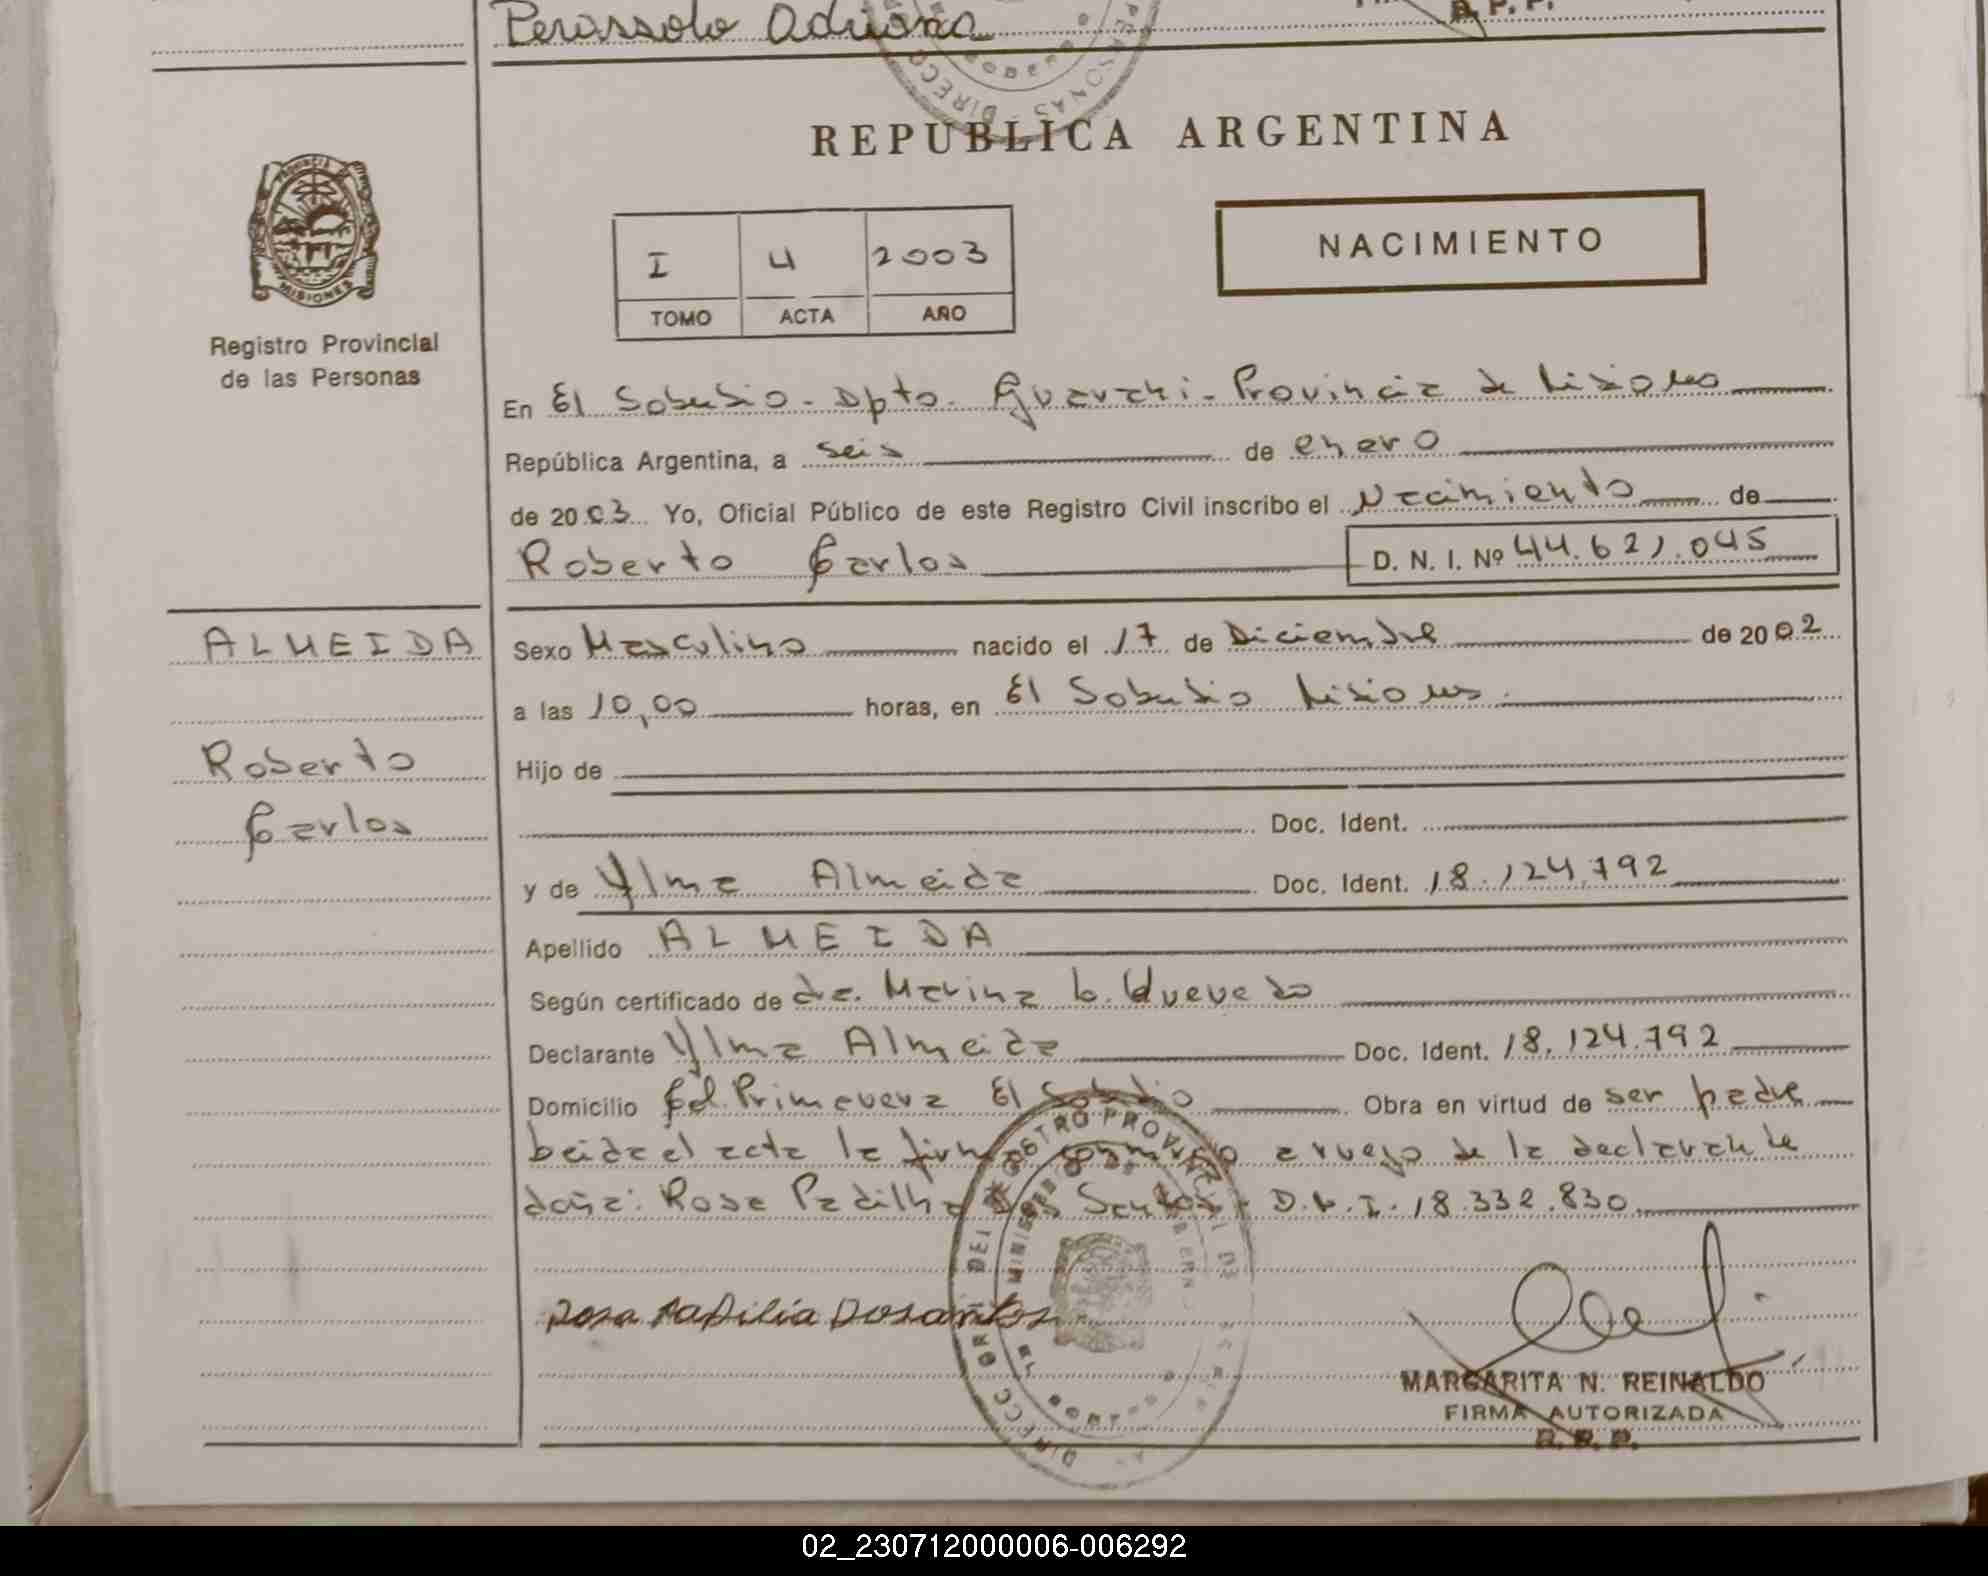 Perassolo Adriana
REPUBLICA ARGENTINA
PROVINCIA
MISIONES
Registro Provincial
de las Personas
I 4 2003
TOMO ACTA AÑO
NACIMIENTO
En El Soberbio - Dpto. Guarani - Provincia de Misiones
República Argentina, a seis de enero
de 2003 Yo, Oficial Público de este Registro Civil inscribo el Nacimiento de
Roberto Carlos D. N. I. Nº 44.621.045
ALMEIDA
Roberto
Carlos
Sexo Masculino nacido el 17 de Diciembre de 2002
a las 10,00 horas, en El Soberbio Misiones.
Hijo de
Doc. Ident.
y de Ylma Almeida Doc. Ident. 18.124.792
Apellido ALMEIDA
Según certificado de dra. Marina Quevedo
Declarante Ylma Almeida Doc. Ident. 18.124.792
Domicilio Col. Primavera El Soberbio Obra en virtud de ser padre
Leida el acta la firma conmigo a ruego de la declarante
doña: Rosa Padilha Dos Santos D.N.I. 18.332.830
Rosa Padilia Dosantos
MARGARITA N. REINALDO
FIRMA AUTORIZADA
R. P. P.
02_230712000006-006292